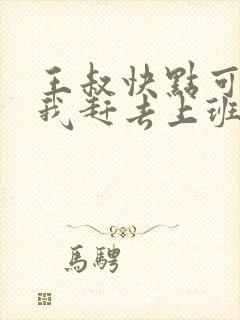 王叔快點可
我赶去上班
馬騁